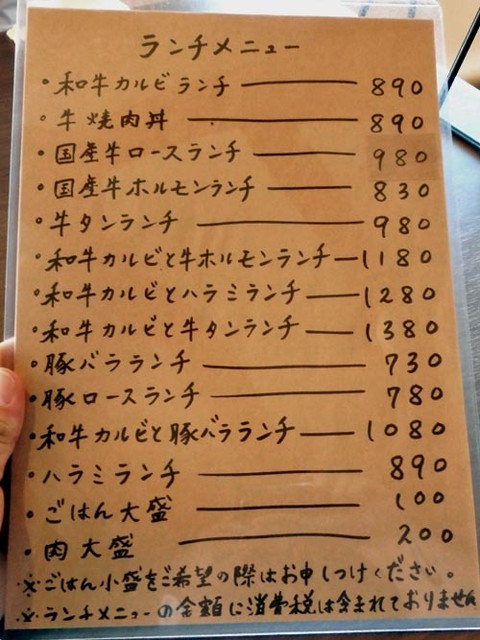 ランチメニュー
・和牛カルビランチ — 890
・牛焼肉丼 — 890
・国産牛ロースランチ — 980
・国産牛ホルモンランチ — 830
・牛タンランチ — 980
・和牛カルビと牛ホルモンランチ — 1180
・和牛カルビとハラミランチ — 1280
・和牛カルビと牛タンランチ — 1380
・豚バラランチ — 730
・豚ロースランチ — 780
・和牛カルビと豚バラランチ — 1080
・ハラミランチ — 890
・ごはん大盛 — 100
・肉大盛 — 200
※ごはん小盛をご希望の際はお申しつけください。
※ランチメニューの金額に消費税は含まれておりません